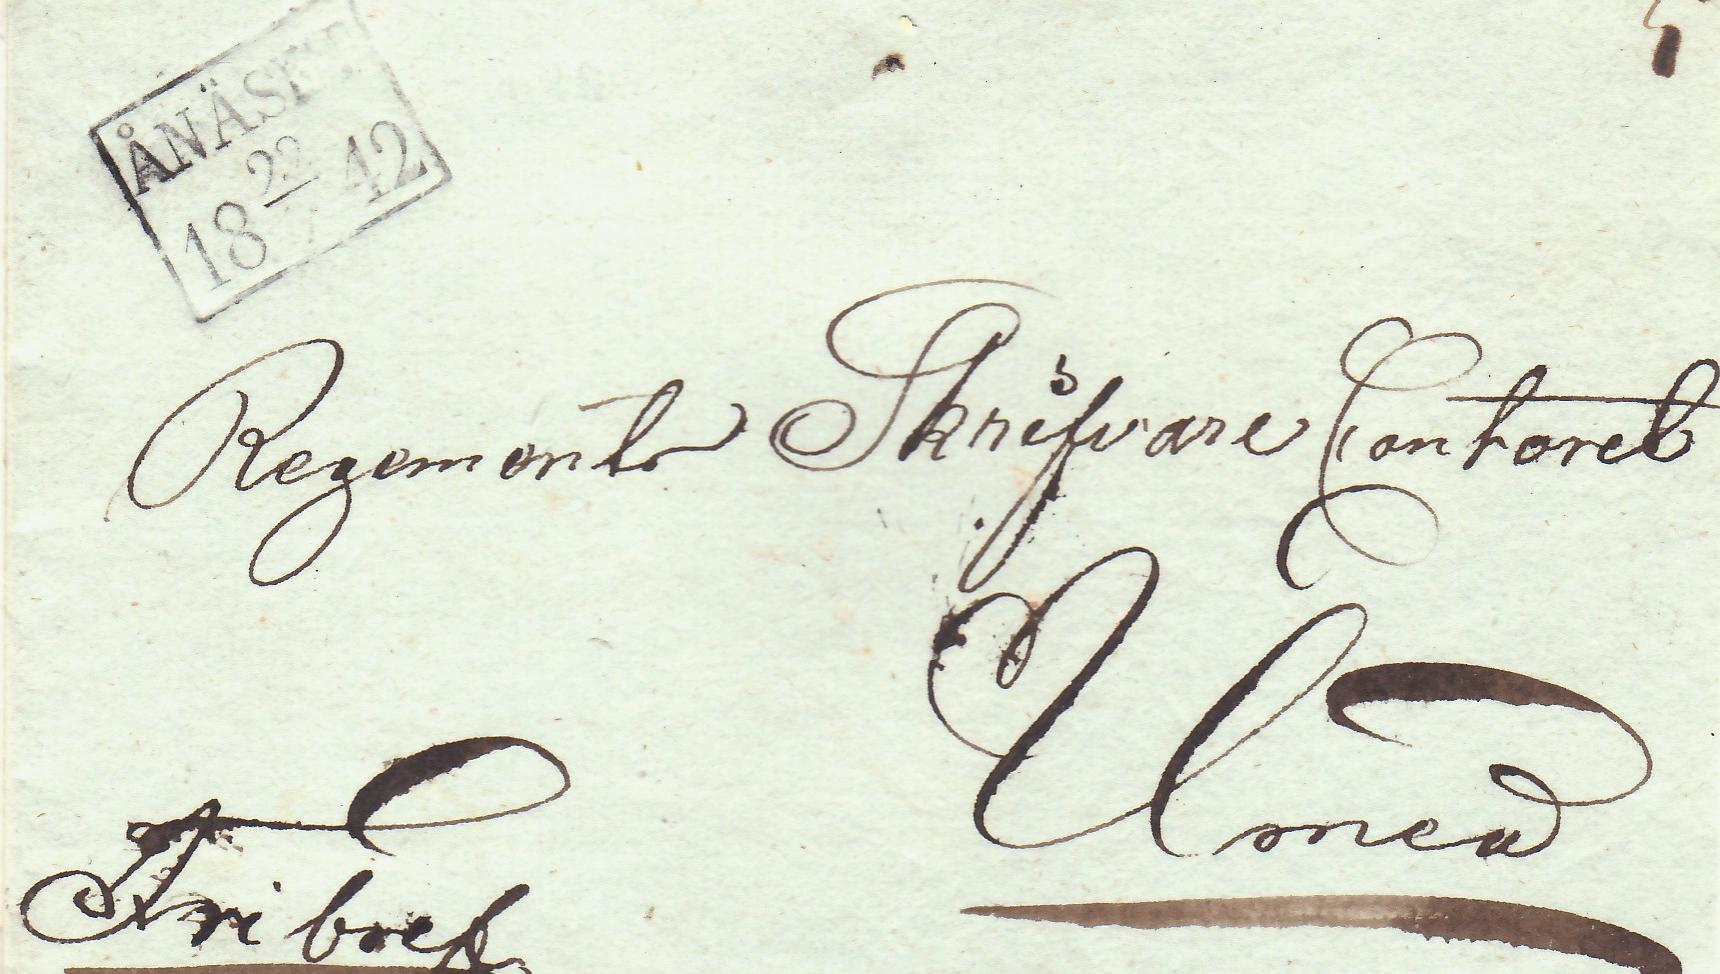 ÅNÄSET
22
18 7 42
Regements Skrifvare Contoret
Umeå
Fribref